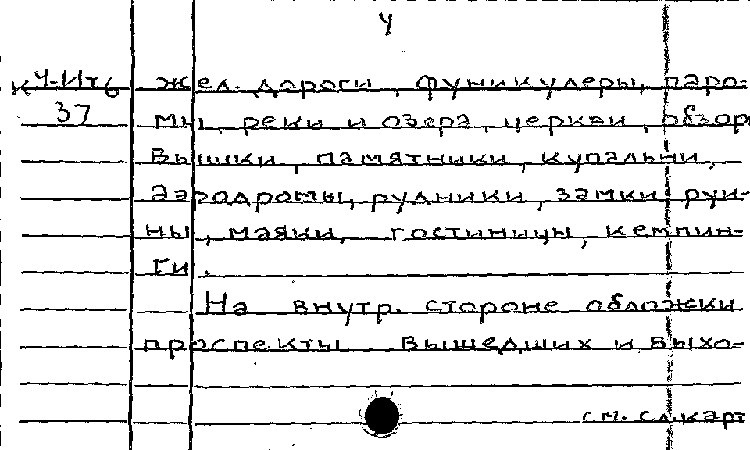 4
К Ч-Ит6 жел. дороги, фуникулеры, паро-
37 мы, реки и озера, церкви, обзор
вышки, памятники, купальни,
аэродромы, рудники, замки, руи-
ны, маяки, гостиницы, кемпин-
ги.
На внутр. стороне обложки
проспекты вышедших и выхо-
см. сл. карт